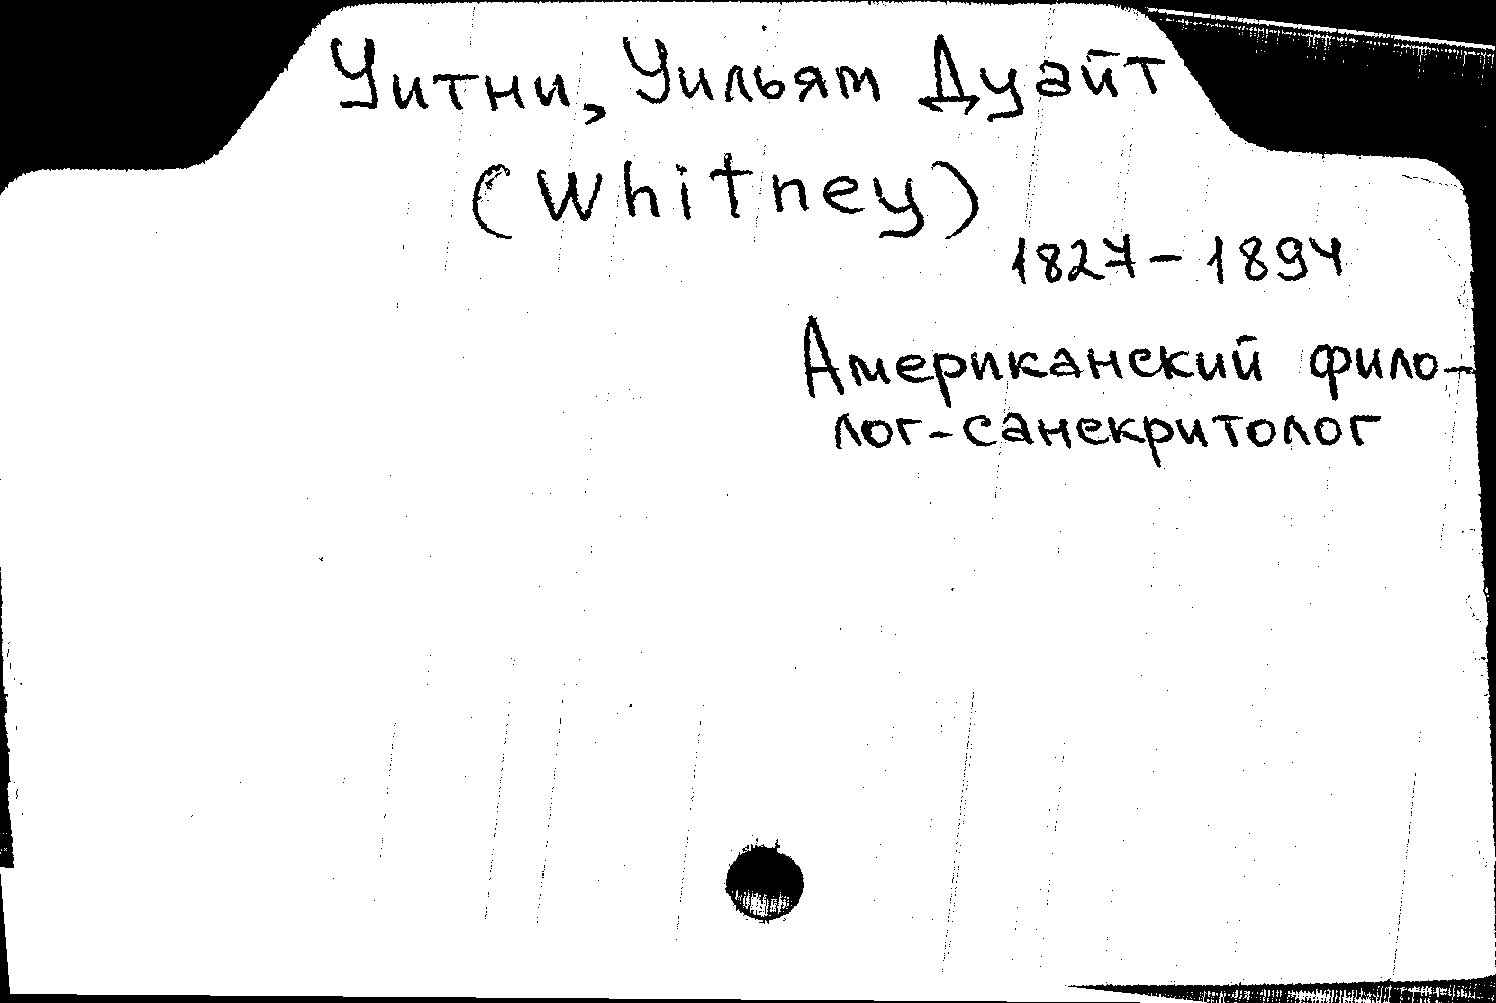 Уитни, Уильям Дуайт
(Whitney)
1827-1894
Американский фило-
лог-санскритолог